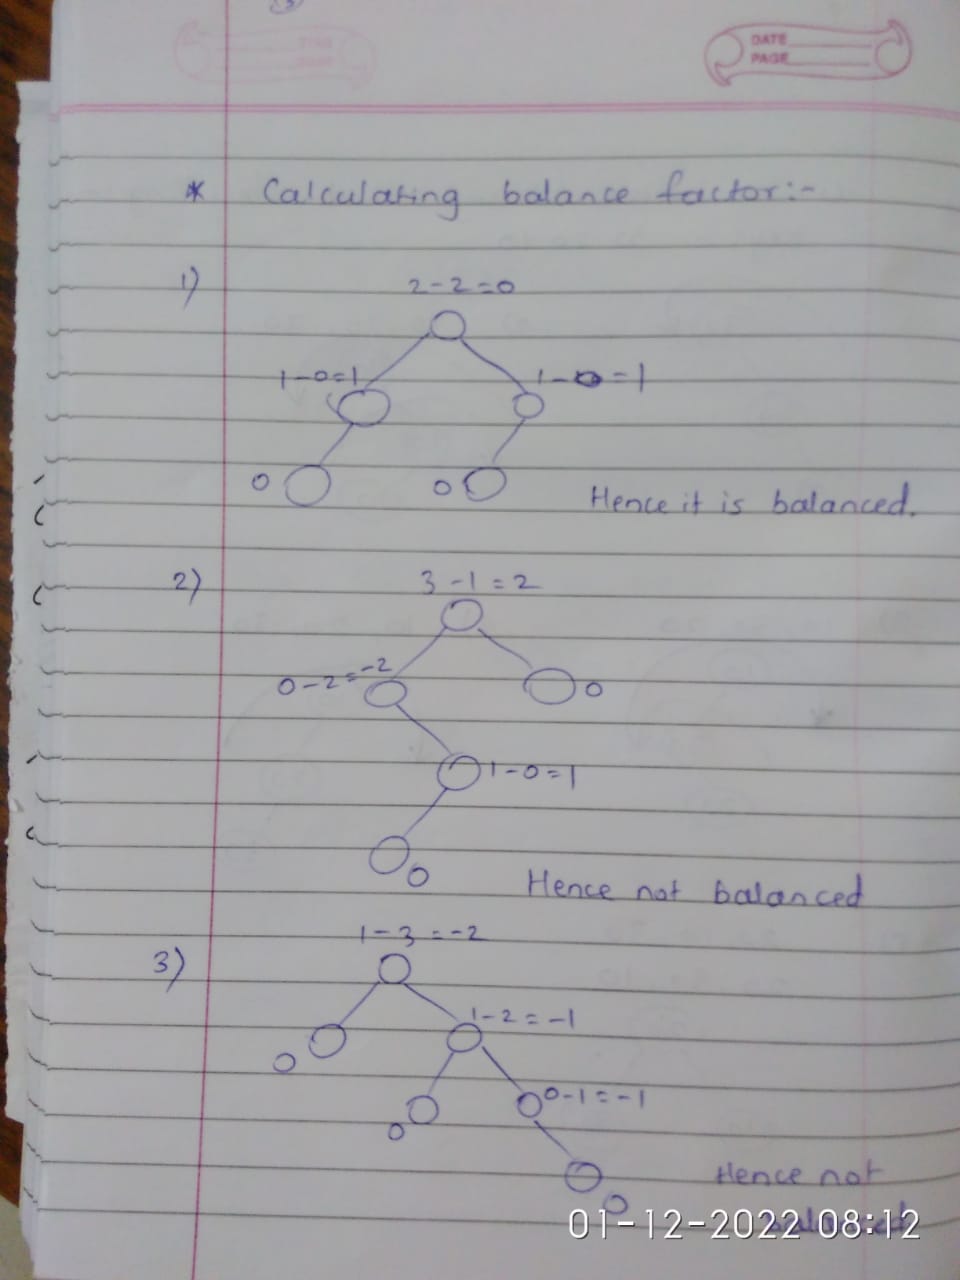 DATE
PAGE
* Calculating balance factor:-
1)
2-2=0
1-0=1
1-0=1
0
0
Hence it is balanced.
2)
3-1=2
0-2=-2
0
1-0=1
0
Hence not balanced
3)
1-3=-2
1-2=-1
0
0-1=-1
0
0
Hence not
balanced
01-12-2022 08:12